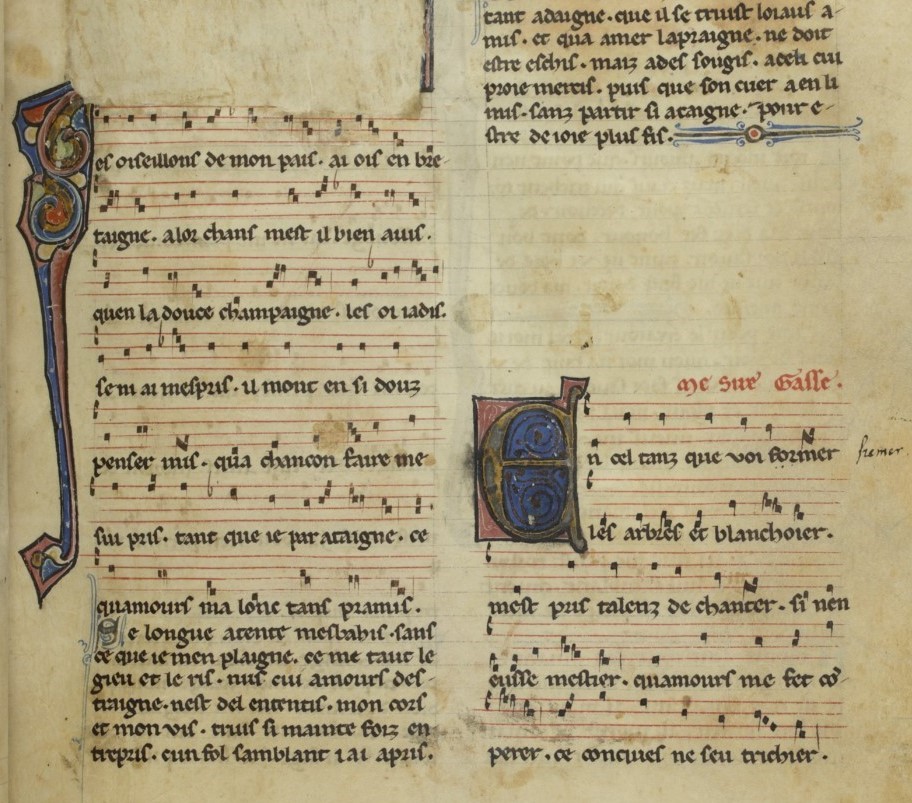 es oiseillons de mon païs· ai oïs en bre-
taigne· a lor chans mest il bien auis·
quen la douce champaigne· les oi iadis·
se ni ai mespris· il mont en si douz
penser mis· qua chancon faire me
sui pris· tant que ie par ataigne· ce
quamours ma lonc tans pramis·
De longue atente mesbahis· sans
ce que ie men plaigne· ce me taut le
gieu et le ris· nus cui amours des-
traigne· nest del ententis· mon cors
et mon vis· truis si mainte foiz en
trepris· cun fol samblant i ai apris·
tant adaigne· que il se truist loiaus a-
mis· et qua amer lapraigne· ne doit
estre eschis· maiz ades sougis· a celi cui
proie mercis· puis que son cuer a en li
mis· sanz partir si ataigne· pour e-
stre de ioie plus fis·
me sire Gasse·
En cel tanz que voi former
fremer.
les arbres et blanchoier·
mest pris talenz de chanter· si nen
eusse mestier· quamours me fet co-
perer· ce conques ne seu trichier·